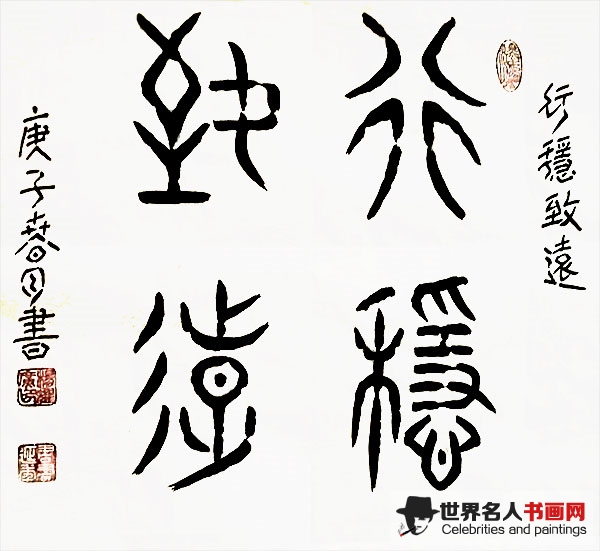 行穩致遠
行穩
致遠
庚子春月書
世界名人书画网
Celebrities and paintings